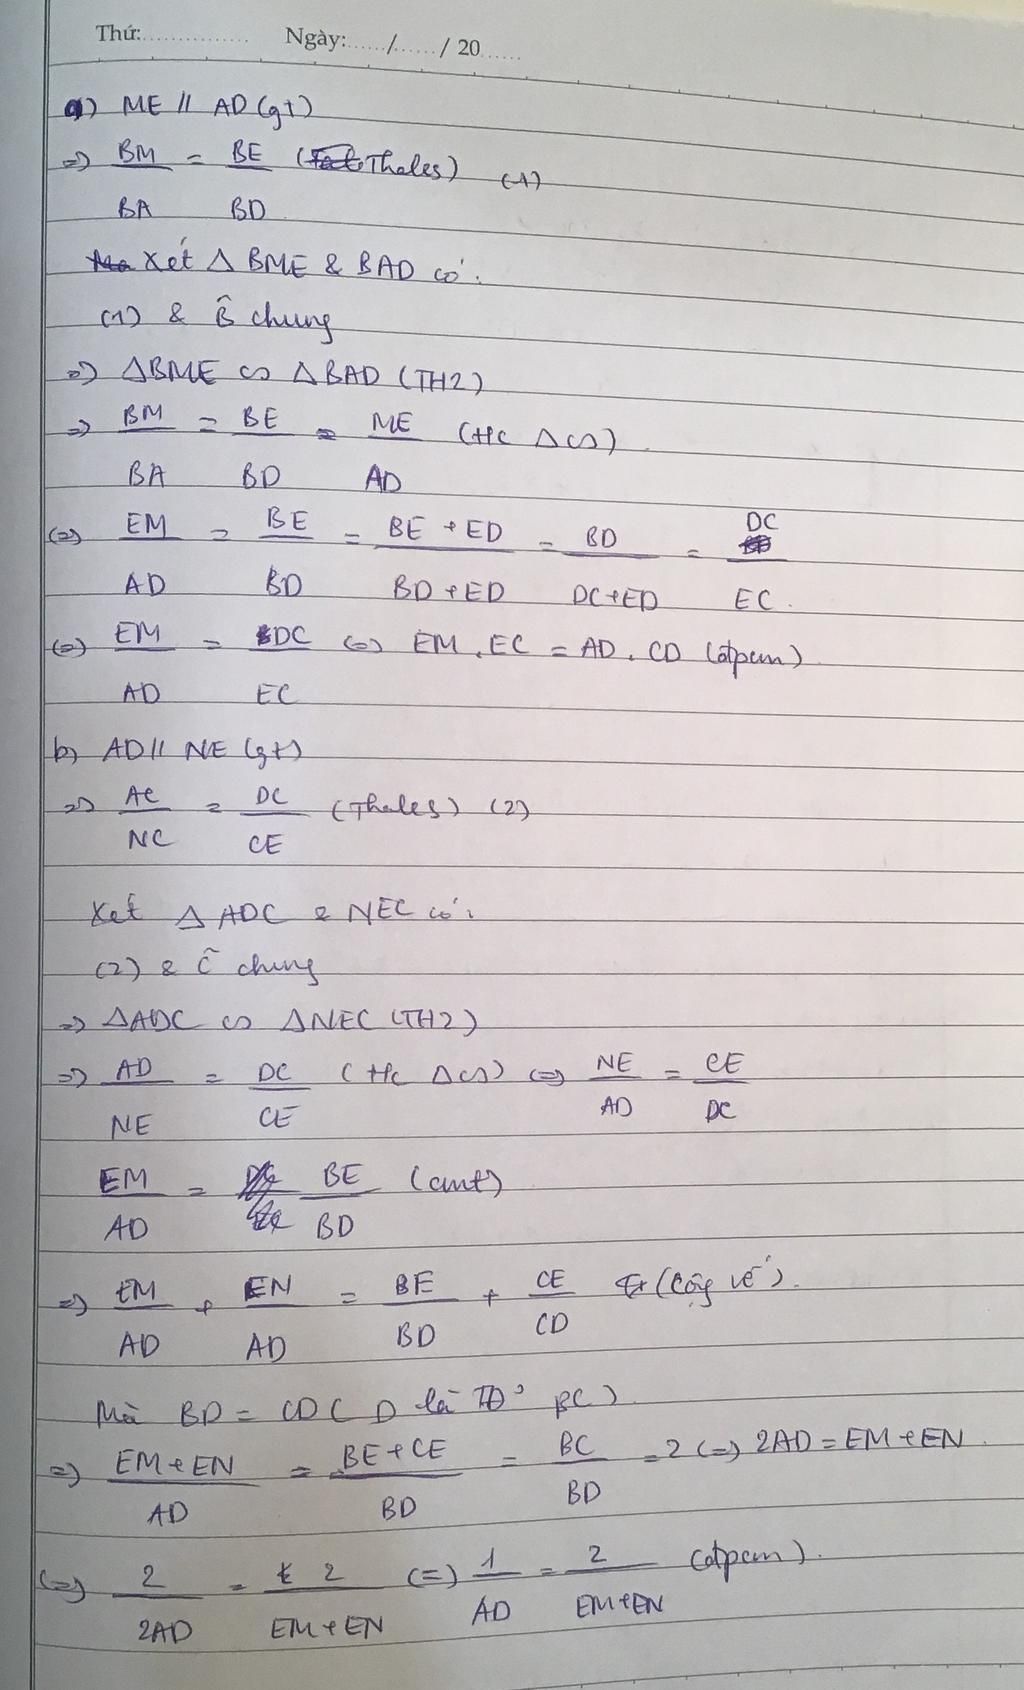 Thứ:............... Ngày:....../....../ 20......
a) ME // AD (gt)
=> BM/BA = BE/BD (Thales) (1)
Xét Δ BME & BAD có:
(1) & B̂ chung
=> ΔBME ∽ ΔBAD (TH2)
=> BM/BA = BE/BD = ME/AD (Hc Δ∽)
(=) EM/AD = BE/BD = BE + ED/BD + ED = BD/DC+ED = DC/EC.
(=) EM/AD = DC/EC (=) EM . EC = AD . CD (đpcm)
b) AD // NE (gt)
=> AC/NC = DC/CE (Thales) (2)
Xét Δ ADC & NEC có:
(2) & Ĉ chung
=> ΔADC ∽ ΔNEC (TH2)
=> AD/NE = DC/CE (Hc Δ∽) (=) NE/AD = CE/DC
EM/AD = BE/BD (cmt)
=> EM/AD + EN/AD = BE/BD + CE/CD (Cộng vế).
Mà BD = CD ( D là TĐ BC)
=> EM + EN/AD = BE + CE/BD = BC/BD = 2 (=) 2AD = EM + EN.
(=) 2/2AD = 2/EM + EN (=) 1/AD = 2/EM+EN (đpcm).